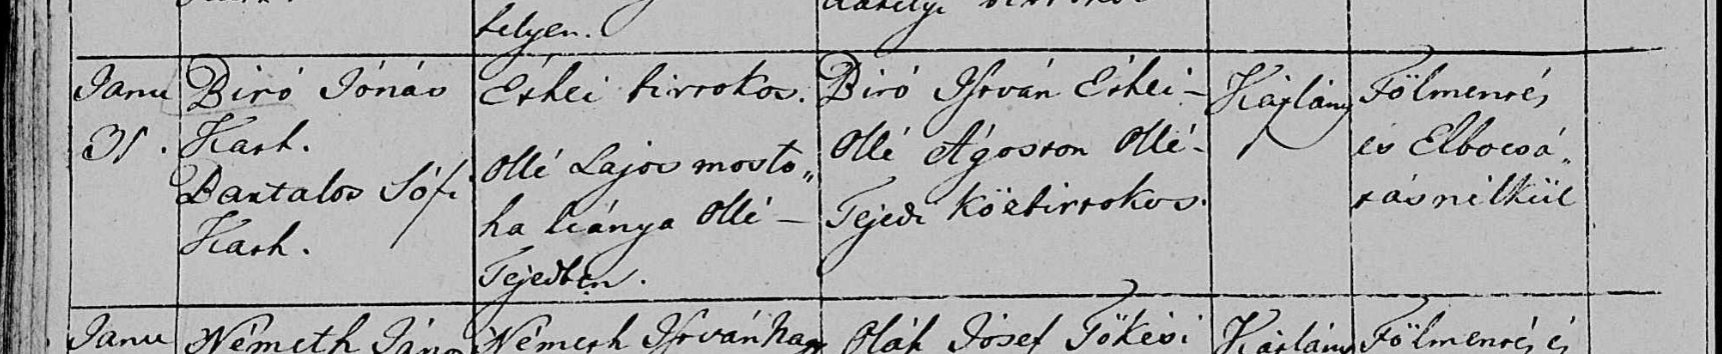 helyen.
Janu
31.
Biró Jónás
Kath.
Bartalos Sófi
Kath.
Érhei birtokos.
Ollé Lajos mosto„
ha leánya Ollé –
Tejedben.
Biró István Érhei –
Ollé Ágoston Ollé-
Tejedi közbirtokos.
Káplány
Fölmentés
és Elbocsá„
tás nélkül
Janu
Németh János
Németh István Nagy
Oláh Jósef Tőkési
Káplány
Fölmentés és